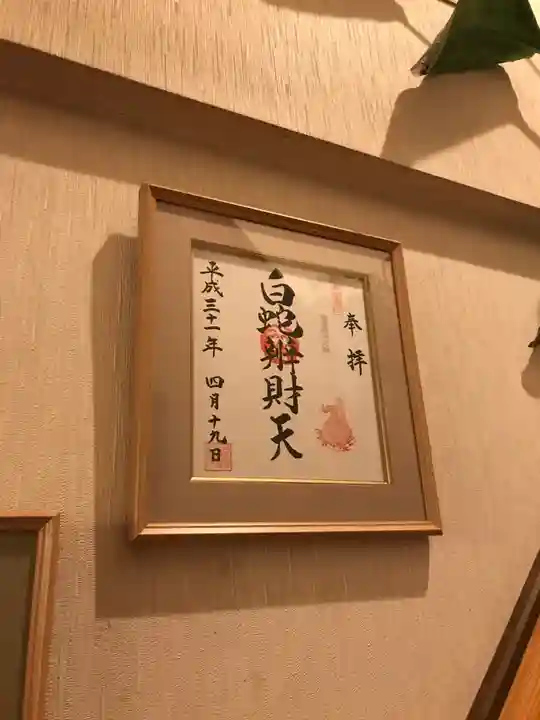 奉拝
白蛇辨財天
平成三十一年 四月十九日